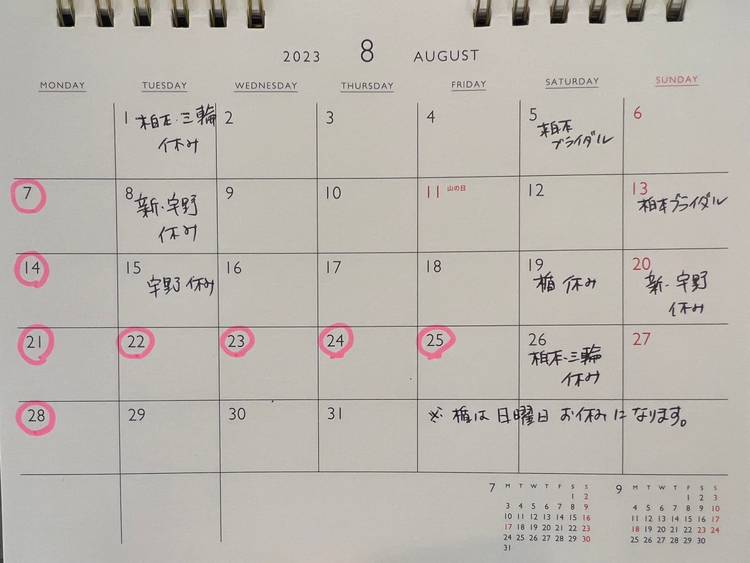 2023 8 AUGUST
MONDAY TUESDAY WEDNESDAY THURSDAY FRIDAY SATURDAY SUNDAY
1 柏木・三輪 2 3 4 5 柏木 6
休み ブライダル
7 8 新・宇野 9 10 11 山の日 12 13 柏木ブライダル
休み
14 15 宇野 休み 16 17 18 19 楯 休み 20 新・宇野
休み
21 22 23 24 25 26 柏木・三輪 27
休み
28 29 30 31 ※ 楯は日曜日 お休みになります。
7 M T W T F S S
1 2
3 4 5 6 7 8 9
10 11 12 13 14 15 16
17 18 19 20 21 22 23
24 25 26 27 28 29 30
31
9 M T W T F S S
1 2 3
4 5 6 7 8 9 10
11 12 13 14 15 16 17
18 19 20 21 22 23 24
25 26 27 28 29 30